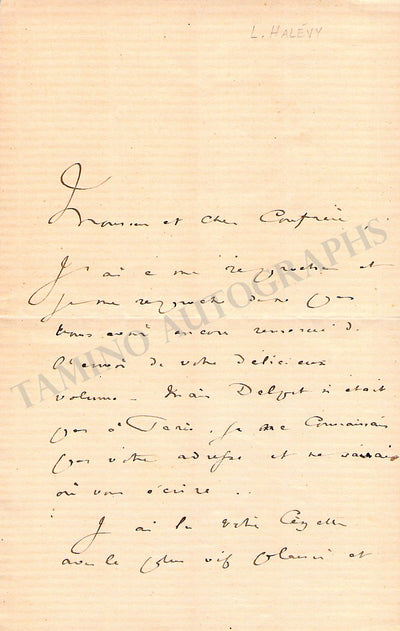 L. HALÉVY
Monsieur et cher Confrère,
J'ai à me reprocher et
je me reproche de ne pas
vous avoir encore remercié de
l'envoi de votre délicieux
volume - Mais Delpit n'était
pas à Paris, je ne connaissais
pas votre adresse et ne savais
où vous écrire ..
J'ai lu votre Cézette
avec le plus vif plaisir et
TAMINO AUTOGRAPHS